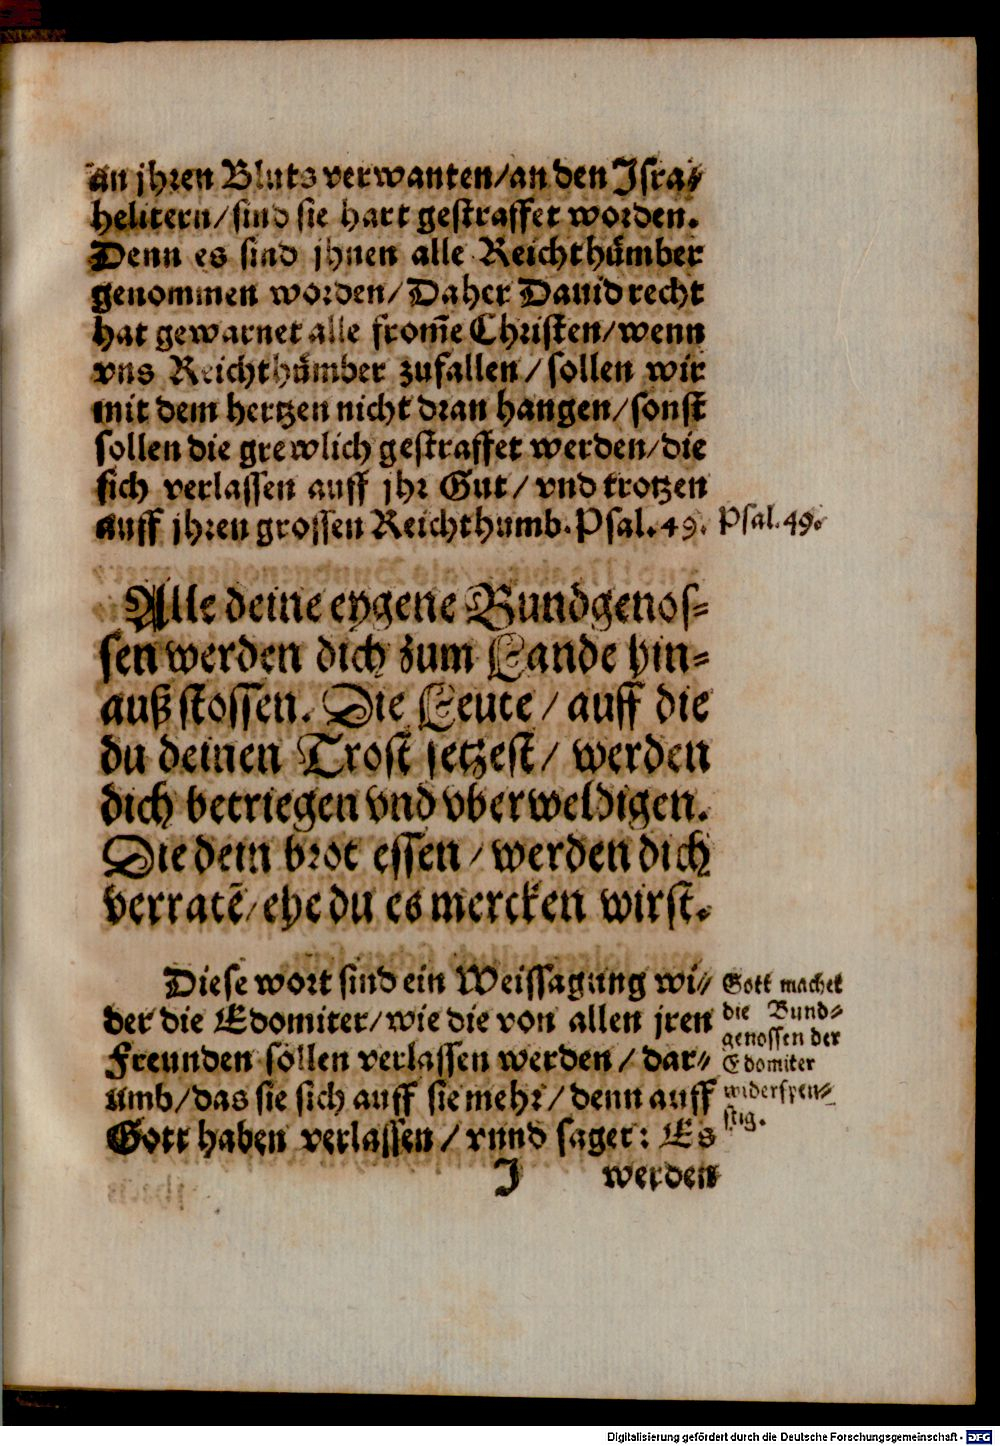 an jhren Bluts verwanten/an den Jsra⸗
helitern/sind sie hart gestraffet worden.
Denn es sind jhnen alle Reichthuͤmber
genommen worden/Daher Dauid recht
hat gewarnet alle from̄e Christen/wenn
vns Reichthuͤmber zufallen/sollen wir
mit dem hertzen nicht dran hangen/sonst
sollen die grewlich gestraffet werden/die
sich verlassen auff jhr Gut/vnd trotzen
auff jhren grossen Reichthumb. Psal. 49.
Psal. 49.
Alle deine eygene Bundgenos⸗
sen werden dich zum Lande hin⸗
auß stossen. Die Leute/auff die
du deinen Trost setzest/werden
dich betriegen vnd vberweldigen.
Die dein brot essen/werden dich
verratē/ehe du es mercken wirst.
Diese wort sind ein Weissagung wi⸗
der die Edomiter/wie die von allen jren
Freunden sollen verlassen werden/dar⸗
umb/das sie sich auff sie mehr/denn auff
Gott haben verlassen/vnnd saget: Es
Gott machet
die Bund⸗
genossen der
Edomiter
widerspen⸗
stig.
J werden
Digitalisierung gefördert durch die Deutsche Forschungsgemeinschaft - DFG